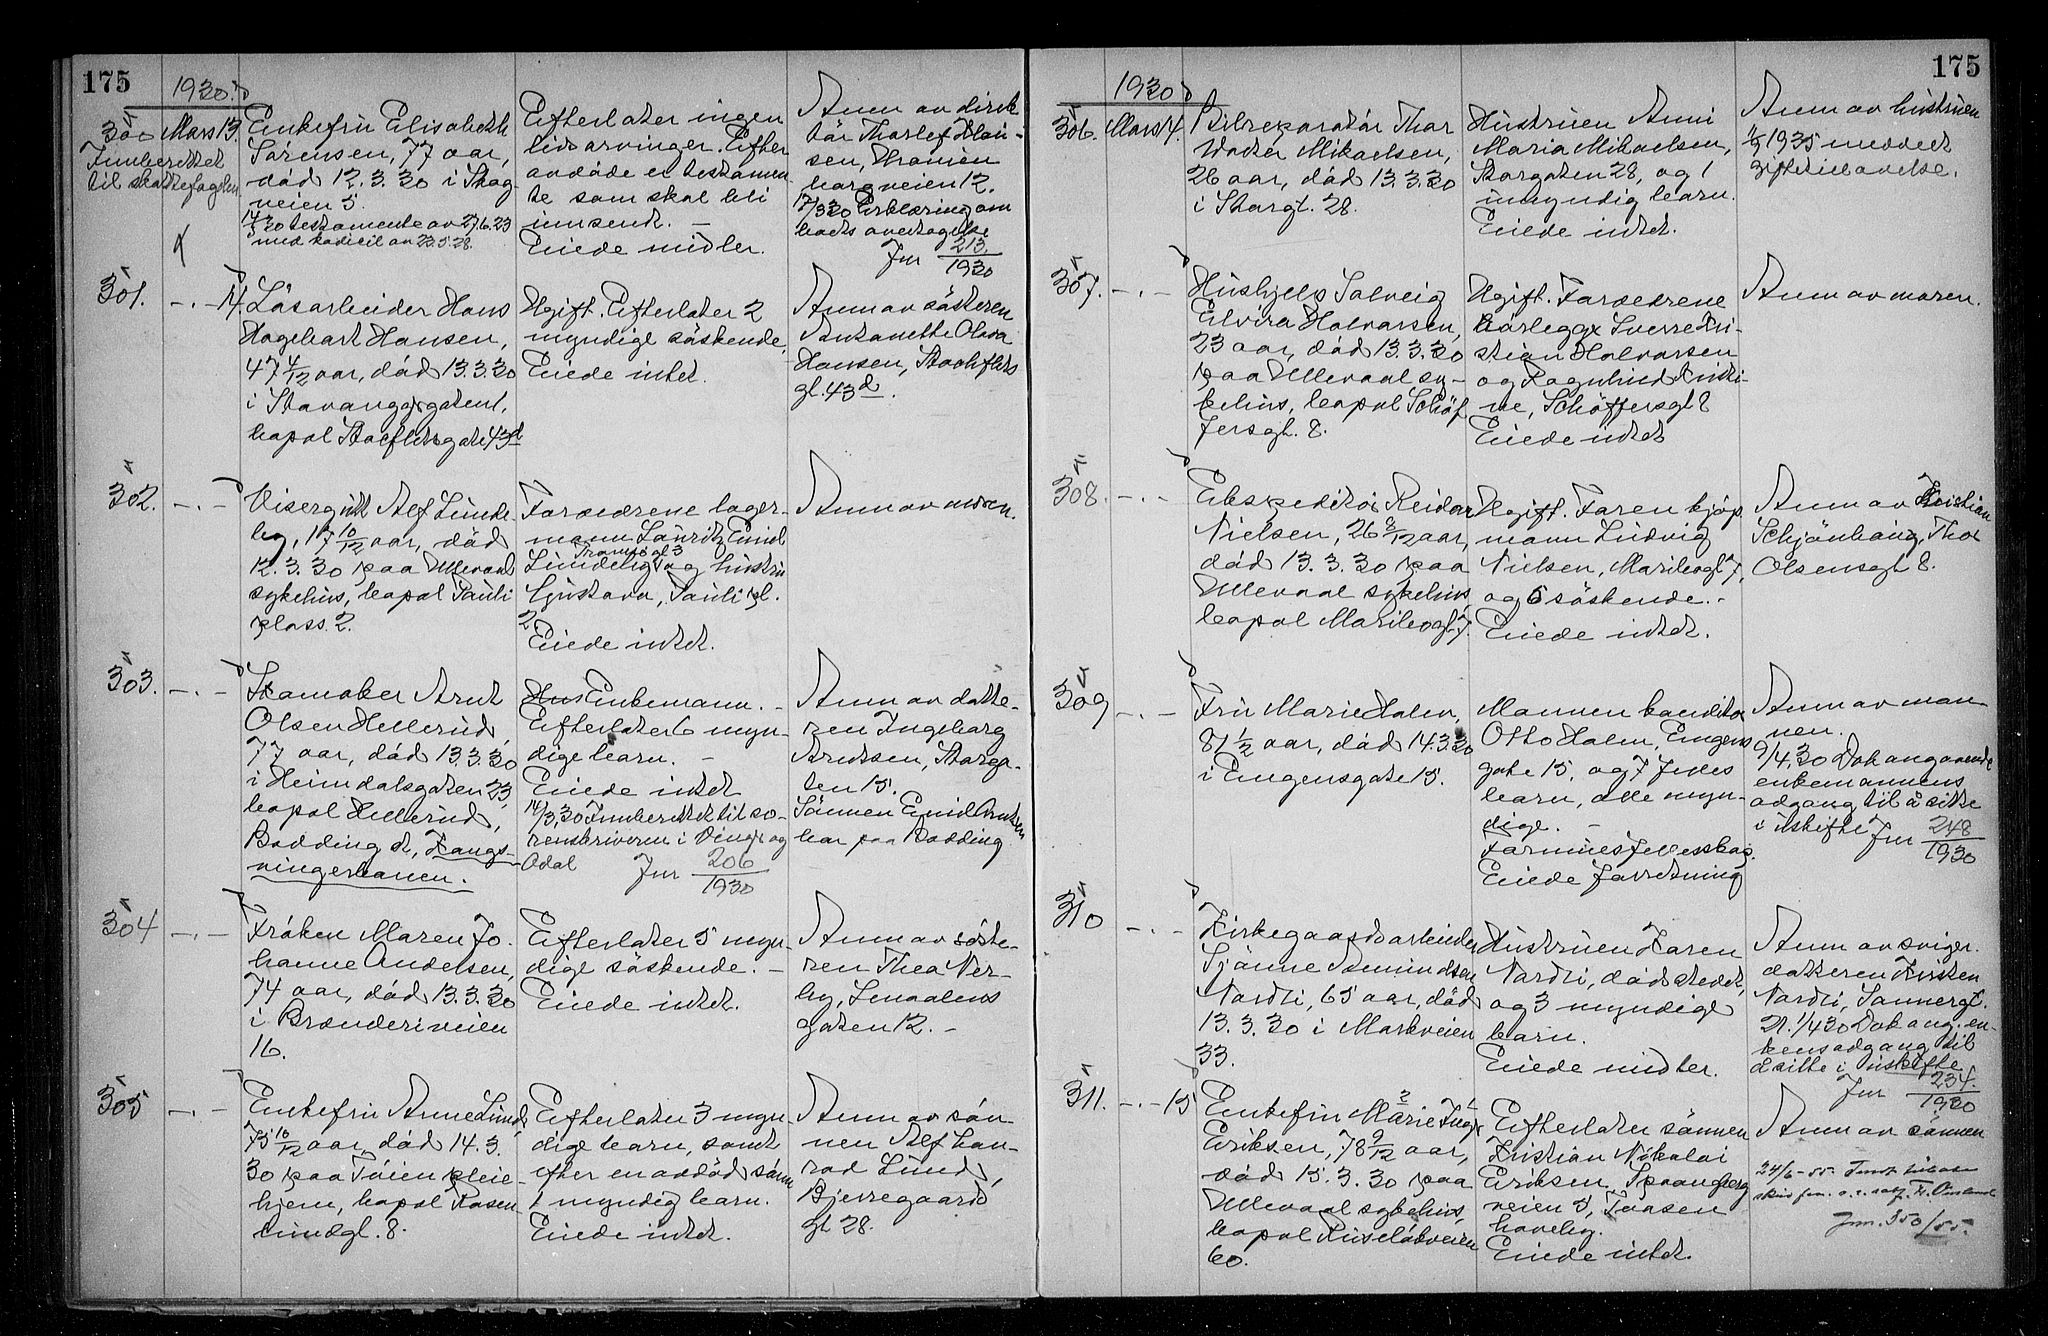 175
1930.
300 Mars 13.
Innberettet
til skattefogden
Enkefru Elisabeth
Sørensen, 77 aar,
død 12.3.30 i Skog-
veien 5.
14/3 30 testamente av 27.6.23
med kodicil av 23.5.28.
Efterlater ingen
livsarvinger. Efter
avdøde er testamen-
te som skal bli
innsendt. -
Eiede midler.
Anm av direk-
tør Thorlef
sen,
borgveien 12.
17/3 30 Erklæring om
boets overtagelse
Jnr 213/1930
301. -.- 14.
Løsarbeider Hans
Hagebart Hansen,
47 4/12 aar, død 13.3.30
i Stavangergaten 1,
bopæl Stockfletsgate 43d
Ugift. Efterlater 2
myndige søskende.
Eiede intet.
Anm av søsteren
Antonette Olava
Hansen, Stockflets
gt. 43d.
302. -.-
Visergutt Alf Lunde-
by, 17 10/12 aar, død
12.3.30 paa Ullevaal
sykehus, bopæl Pauli
plass 2.
Forældrene lager-
mann Lauritz Emil
Lundeby, Tromsøgt 3 og hustru
Gustava, Pauli pl.
2.
Eiede intet.
Anm av moren.
303. -.-
Skomaker Arnt
Olsen Hellerud,
77 aar, død 13.3.30
i Heimdalsgaten 23,
bopæl Hellerud,
Bodding st, Kongs-
vingerbanen.
Hus Enkemann. -
Efterlater 6 myn-
dige barn. -
Eiede intet
14/3.30 Innberettet til so-
renskriveren i Vinger og
Odal Jnr 206/1930
Anm av datte-
ren Ingeborg
Arntsen, Storga-
ten 15.
Sønnen Emil Arntsen
bor paa Bodding
304 -.-
Frøken Maren Jo-
hanne Andersen,
74 aar, død 13.3.30
i Brænderiveien
16.
Efterlater 5 myn-
dige søskende. -
Eiede intet.
Anm av søste-
ren Thea Ner-
by,
gaten 12. -
305 -.-
Enkefru Anne Lund,
75 10/12 aar, død 14.3.
30 paa Tøien pleie-
hjem, bopæl Rosen-
lundgt. 8.
Efterlater 3 myn-
dige barn, samt
efter en avdød sønn
1 myndig barn.
Eiede intet.
Anm av søn-
nen Alf Kon-
rad Lund,
Bjerregaards
gt 28.
175
1930
306. Mars 14.
Bilreparatør Thor
Walter Mikaelsen,
26 aar, død 13.3.30
i Storgt. 28.
Hustruen Anni
Maria Mikaelsen,
Storgaten 28, og 1
umyndig barn.
Eiede intet.
Anm av hustruen
1935 meddelt
giftetillatelse.
307. -.-
Hushjelp Solveig
Elvira Halvorsen,
23 aar, død 13.3.30
paa Ullevaal sy-
kehus, bopæl Schøf
fersgt. 8.
Ugift. Forældrene
rørlegger Sverre Kri-
stian Halvorsen
og Ragnhild Kristi-
ne, Schøffersgt 8
Eiede intet
Anm av moren.
308. -.-
Ekspeditør Reidar
Nielsen, 26 8/12 aar,
død 13.3.30 paa
Ullevaal sykehus,
bopæl Maribogt. 7.
Ugift. Faren kjøp-
mann Ludvig
Nielsen, Maribogt 7,
og 6 søskende. -
Eiede intet.
Anm av Kristian
Schjønhaug, Thor
Olsensgt 8.
309 -.-
Fru Marie Holm,
81 1/2 aar, død 14.3.30
i Eugensgate 15.
Mannen konditor
Otto Holm, Eugens
gate 15, og 7 felles
barn, alle myn-
dige. -
Formuesfellesskap.
Eiede forretning
Anm av man-
nen.
9/4.30 Dok angaaende
enkemannens
adgang til å sitte
i uskifte Jnr 248/1930
310 -.-
Kirkegaardsarbeider
Sjønne Amundsen
Nordli, 65 aar, død
13.3.30 i Markveien
33.
Hustruen Karen
Nordli, dødsstedet,
og 3 myndige
barn.
Eiede midler.
Anm av sviger-
datteren Kristen
Nordli, Sannergt.
21. 1/4 30 Dok ang. en-
kens adgang til
å sitte i uskifte
Jnr 234/1930
311. -.- 15
Enkefru Marie Inger
Eriksen, 78 9/12 aar,
død 15.3.30 paa
Ullevaal sykehus,
bopæl Ruseløkveien
60.
Efterlater sønnen
Kristian Nikolai
Eriksen, Spaangberg
veien 5, Taasen
haveby.
Eiede intet.
Anm av sønnen
24/6-55.
Jnr. 350/55.